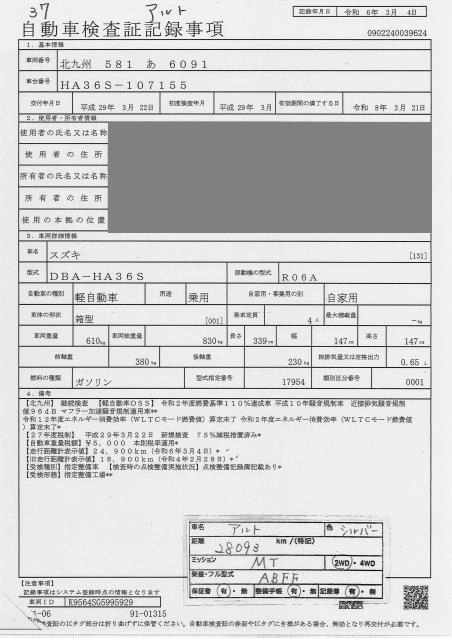 37 アルト
自動車検査証記録事項
記録年月日 令和 6年 3月 4日
0902240039624
1. 基本情報
車両番号 北九州 581 あ 6091
車台番号 HA36S-107155
交付年月日 平成 29年 3月 22日 初度検査年月 平成 29年 3月 有効期間の満了する日 令和 8年 3月 21日
2. 使用者・所有者情報
使用者の氏名又は名称
使用者の住所
所有者の氏名又は名称
所有者の住所
使用の本拠の位置
3. 車両詳細情報
車名 スズキ [131]
型式 DBA-HA36S 原動機の型式 R06A
自動車の種別 軽自動車 用途 乗用 自家用・事業用の別 自家用
車体の形状 箱型 [001] 乗車定員 4人 最大積載量 -kg
車両重量 610kg 車両総重量 830kg 長さ 339cm 幅 147cm 高さ 147cm
前軸重 380kg 後軸重 230kg 総排気量又は定格出力 0.65 L
燃料の種類 ガソリン 型式指定番号 17954 類別区分番号 0001
4. 備考
【北九州】 継続検査 【軽自動車OSS】 令和2年度燃費基準110%達成車 平成10年騒音規制車 近接排気騒音規制
値96dB マフラー加速騒音規制適用車**
令和12年度エネルギー消費効率(WLTCモード燃費値)算定未了 令和2年度エネルギー消費効率(WLTCモード燃費値
)算定未了*
【27年度税制】 平成29年3月22日 新規検査 75%減税措置済み*
【自動車重量税額】¥5,000 本則税率適用*
【走行距離計表示値】24,900km(令和6年3月4日)*
【旧走行距離計表示値】18,900km(令和4年2月28日)*
【受検種別】指定整備車 【検査時の点検整備実施状況】点検整備記録簿記載あり*
【受検形態】指定整備工場**
車名 アルト 色 シルバー
距離 28093 km/(特記)
ミッション MT 2WD・4WD
架装・フル型式 ABFF
保証書 有・無 整備手帳 有・無 記録簿 有・無
【注意事項】
記録事項はシステム登録時点の情報となります
車両ID K9564SG5995929
91-06 91-01315
検査証のICタグ部分は折り曲げずに保管ください。自動車検査証の券面やICタグにき損がある場合、無効となり再交付が必要です。